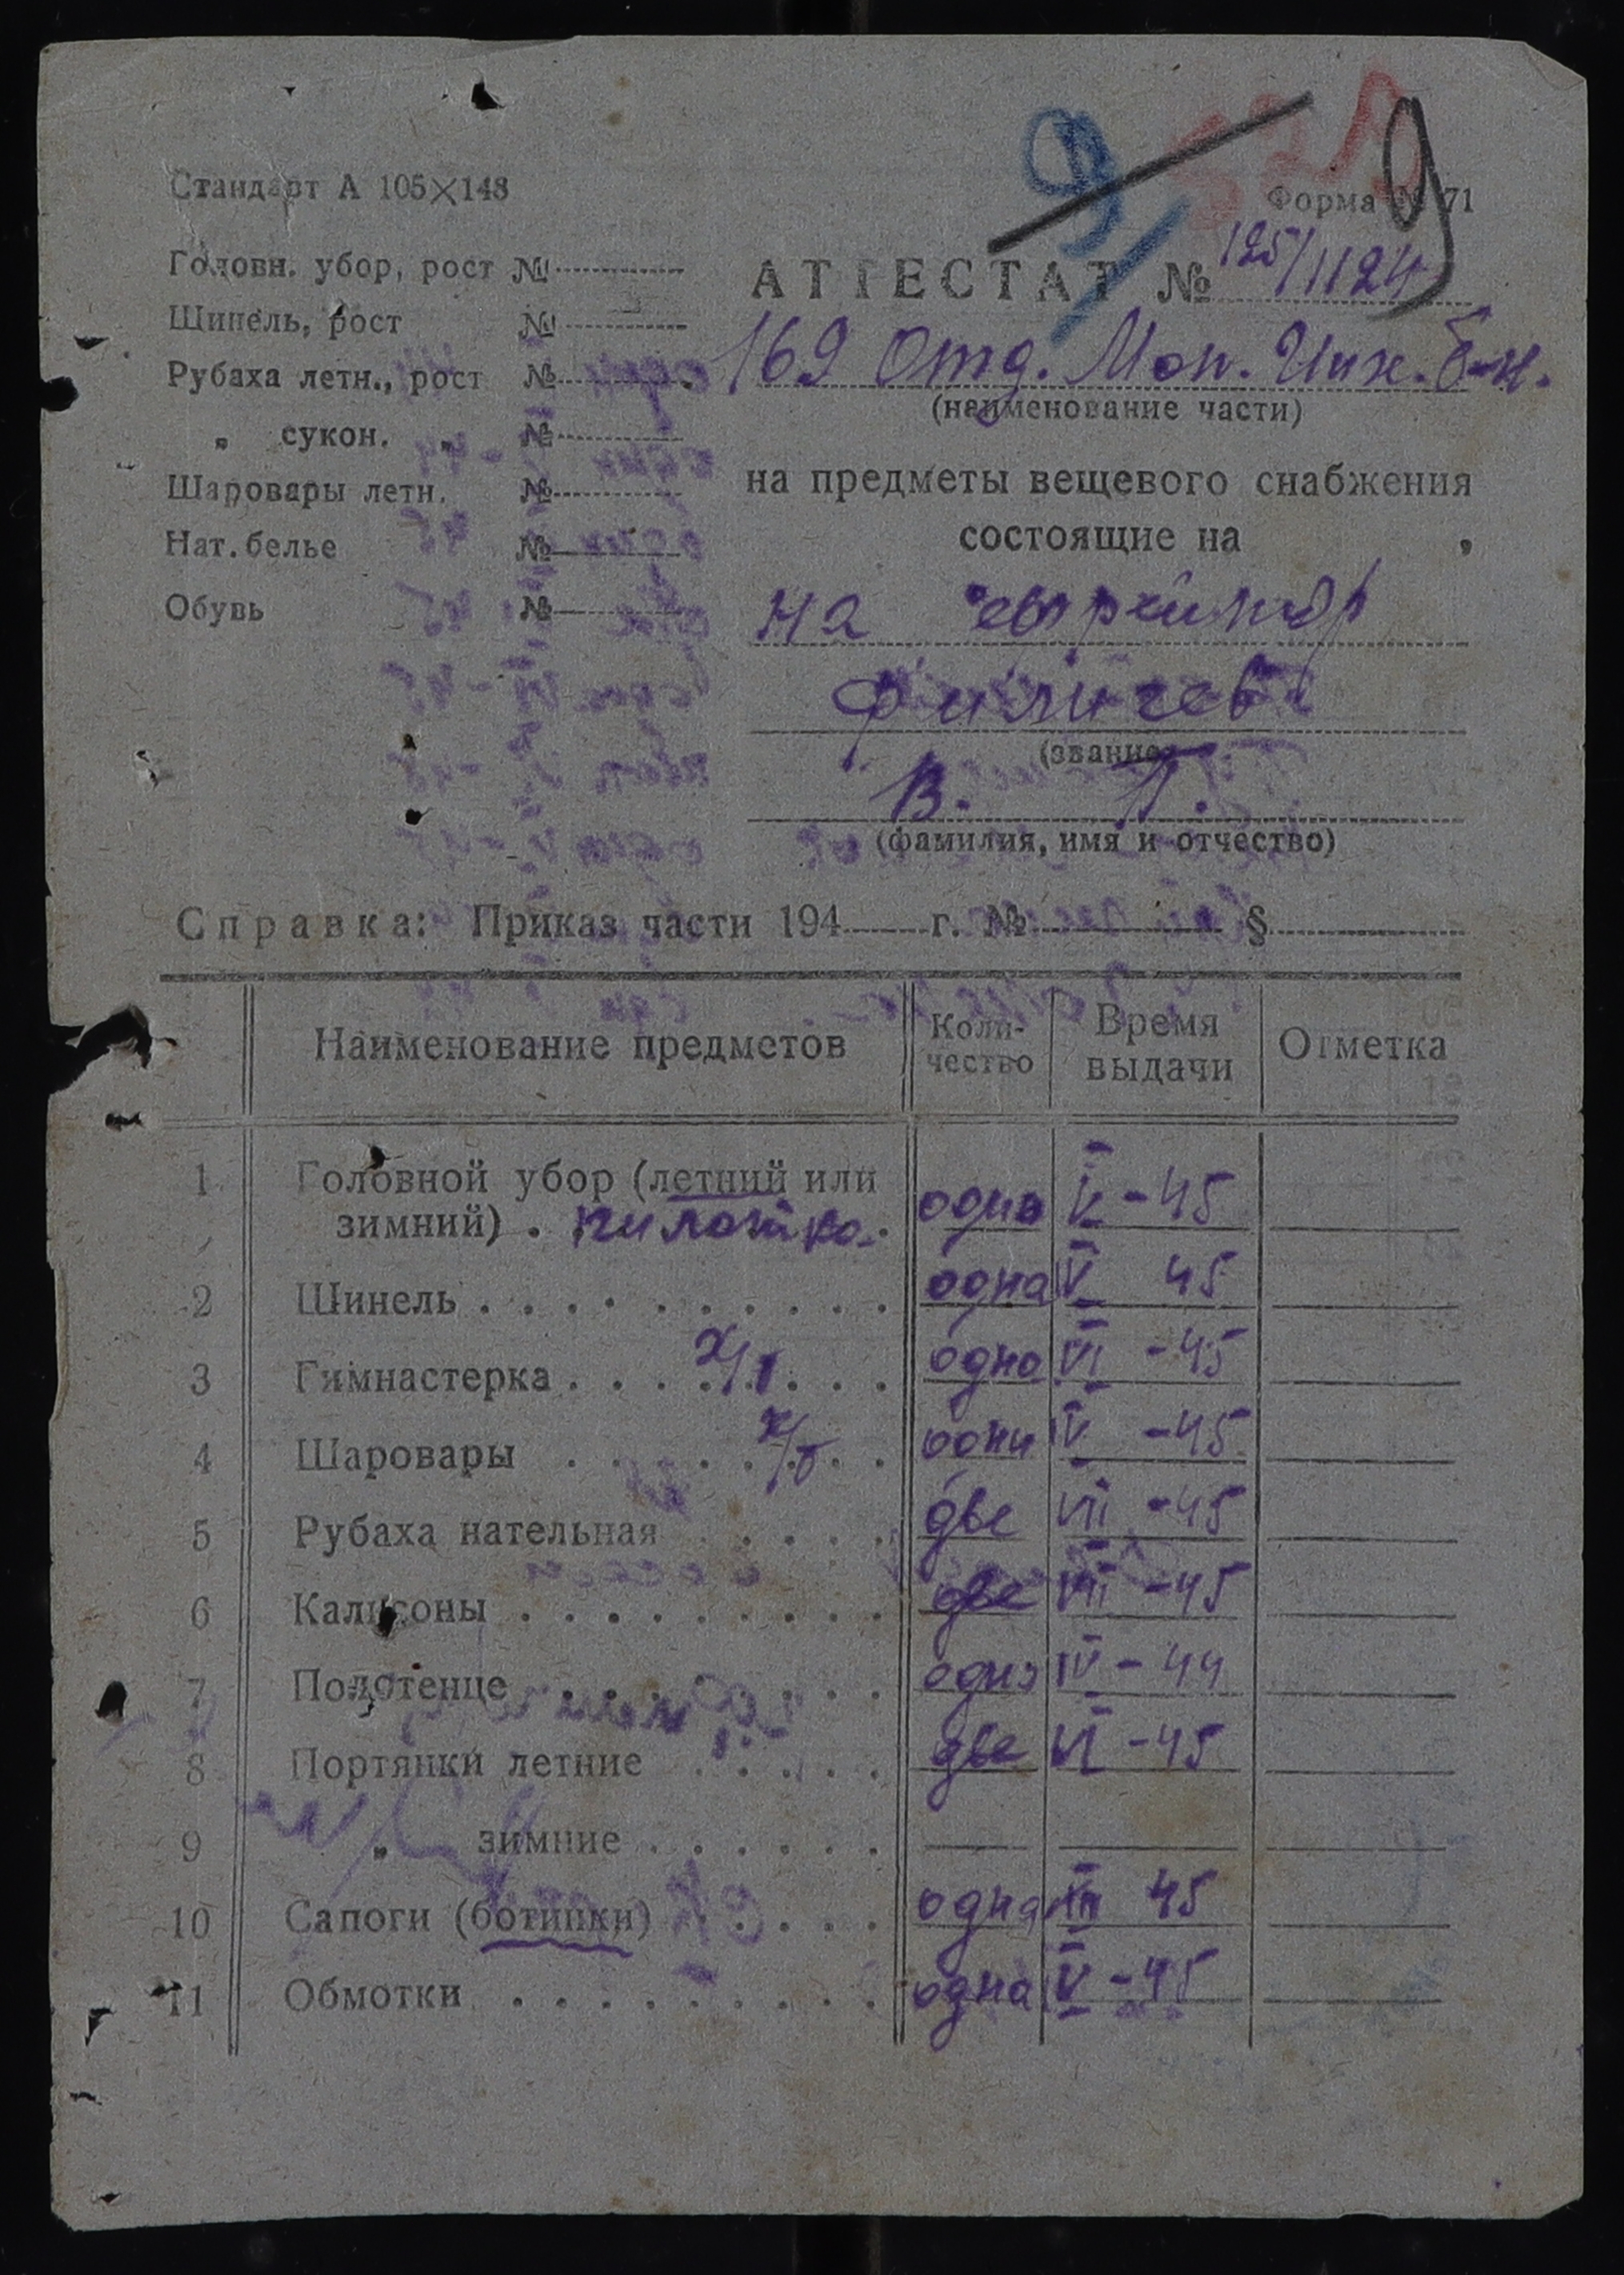 9 329 9
Стандарт А 105×148
Форма № 71
Головн. убор, рост №
Шинель, рост №
Рубаха летн., рост №
„ сукон. „ №
Шаровары летн. №
Нат. белье №
Обувь №
АТТЕСТАТ № 125/1124
169 Отд. Мот. Инж. б-н.
(наименование части)
на предметы вещевого снабжения
состоящие на ,
на ефрейтор
Филичева
(звание)
В. П.
(фамилия, имя и отчество)
Справка: Приказ части 194 г. № §
Наименование предметов Коли-чество Время выдачи Отметка
1 Головной убор (летний или
зимний) . пилотка. одна V - 45
2 Шинель . . . . . . . . . . одна V 45
3 Гимнастерка . . х/б . . . одна VI - 45
4 Шаровары . . . х/б . . одни V - 45
5 Рубаха нательная . . . . . две VII - 45
6 Кальсоны . . . . . . . . . две VII - 45
7 Полотенце . . . . . . . . одно IV - 44
8 Портянки летние . . . . . две VI - 45
9 „ зимние . . . . . .
10 Сапоги (ботинки) . . . . одна III 45
11 Обмотки . . . . . . . . . одна V - 45